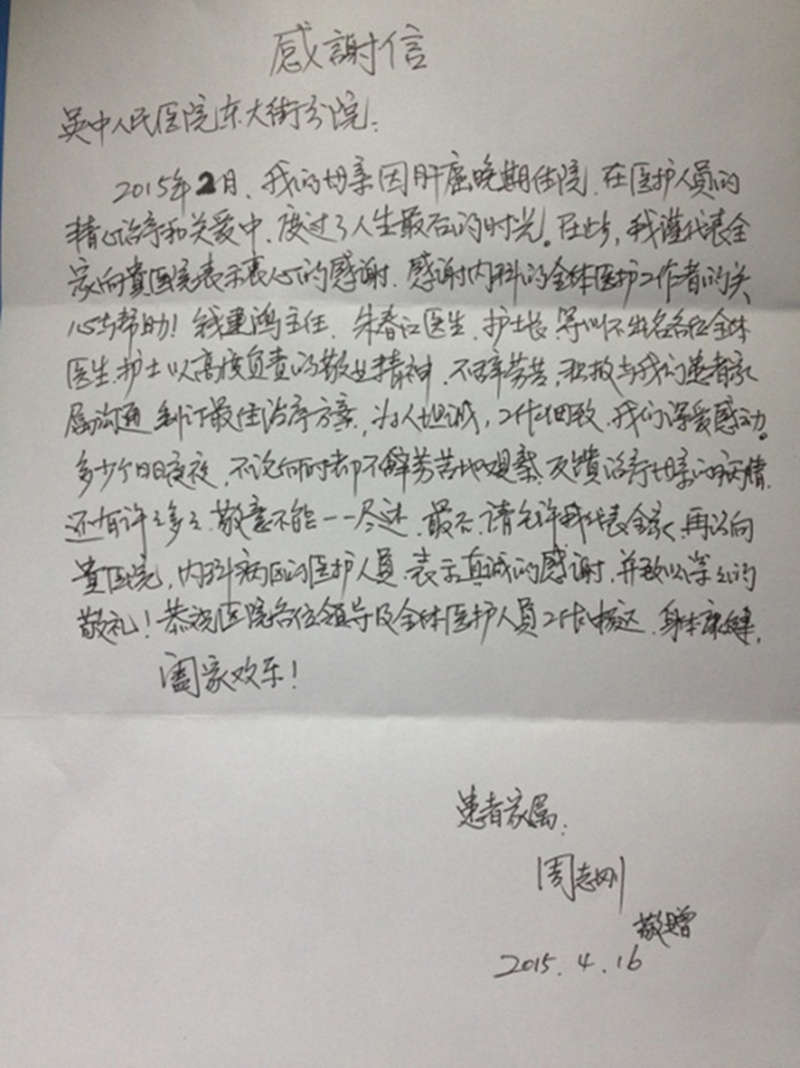 感謝信
吴中人民医院东大街分院:
2015年2月、我的母亲因肝癌晚期住院、在医护人员的
精心治疗和关爱中、度过了人生最后的时光。在此,我谨代表全
家向貴医院表示衷心的感谢、感谢内科的全体医护工作者的关
心与帮助!钱建鸿主任、朱春江医生、护士长、等叫不出名各位全体
医生护士以高度负责的敬业精神、不辞劳苦,积极与我们患者家
属沟通、制订最佳治疗方案,为人坦诚,工作细致、我们深受感动。
多少个日日夜夜、不论何时都不辞劳苦地观察、反馈治疗母亲的病情、
还有许许多多、敬意不能一一尽述、最后、请允许我代表全家、再次向
貴医院,内科病区的医护人员、表示真诚的感谢、并致以深深的
敬礼!恭祝医院各位领导及全体医护人员工作顺达、身体康健,
阖家欢乐!
患者家属:
周志刚
敬赠
2015.4.16